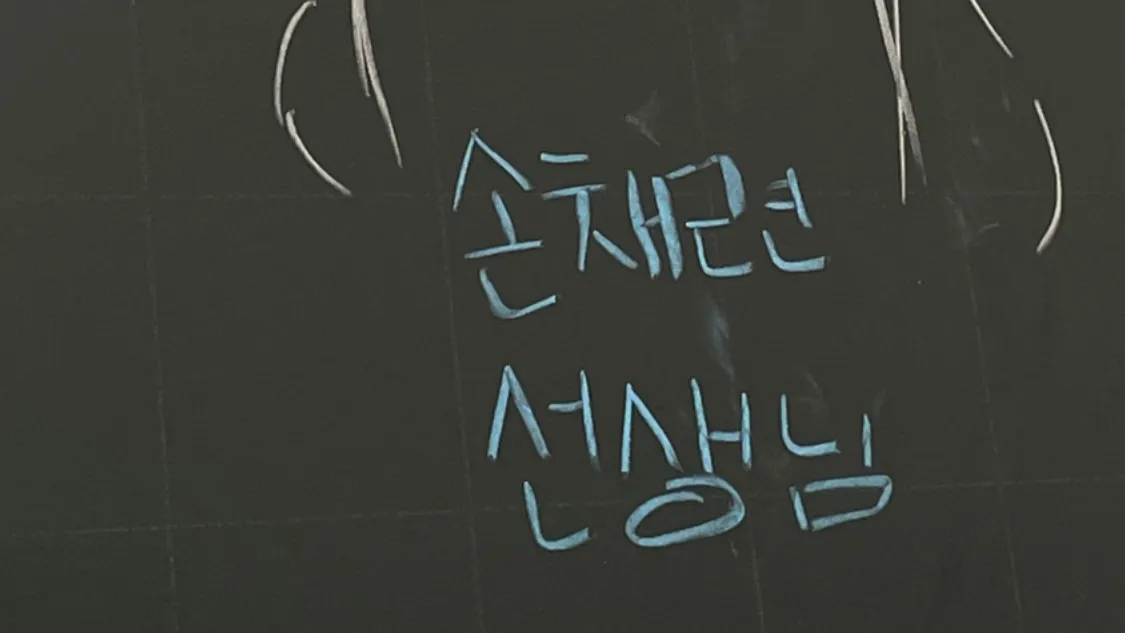 손채련
선생님